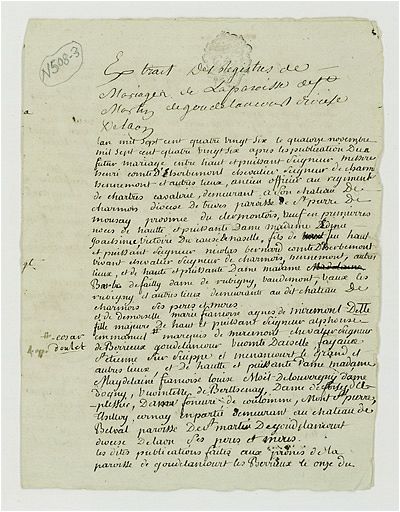 N508-3
Extrait Des Registres de
Mariages de La paroisse de St
Martin de goudelancourt diocese
De laon
Lan mil sept cent quatre vingt six le quatorze novembre
mil sept cent quatre vingt six apres les publication Du
futur mariage entre haut et puissant seigneur messire
henri comte D'herbemont chevalier seigneur de charmois
hennemont et autres lieux, ancien officier au regiment
de chartres cavalerie, demeurant a son chateau De
charmois diocese de treves paroisse De St pierre de
mouzay province du clermontois, veuf en premieres
noces de haute et puissante Dame madame
joachime victoire Du, fils de feu haut
et puissant seigneur nicolas bernard comte D'herbemont
vivant chevalier seigneur de charmois hennemont, autres
lieux, et de haute et puissante Dame madame
Barbe de failly dame de rubigny vaudemont, vaux les
rubigny et autres lieux demeurante au dit chateau De
charmois ses pere et mere
et demoiselle marie francoise agnes de miremont Dlle
fille majeure De haut et puissant seigneur alphonse
cesar
emmanuel marquis de miremont chevalier seigneur
de Berrieux goudelancourt vicomte
St etienne sur suippe et menancourt le grand et
autres lieux, et de haute et puissante Dame madame
Magdelaine francoise louise Moët de louvergny dame
Dogny, vicomtesse de Berthenay, Dame de
plessier, Dame fonciere de coulommes, Mont St pierre,
cernay en partie demeurant au chateau de
Belval paroisse De St martin De goudelancourt
diocese De laon ses peres et meres
les dites publications faites aux prônes de la
paroisse de goudelancourt les Berrieux le onze du